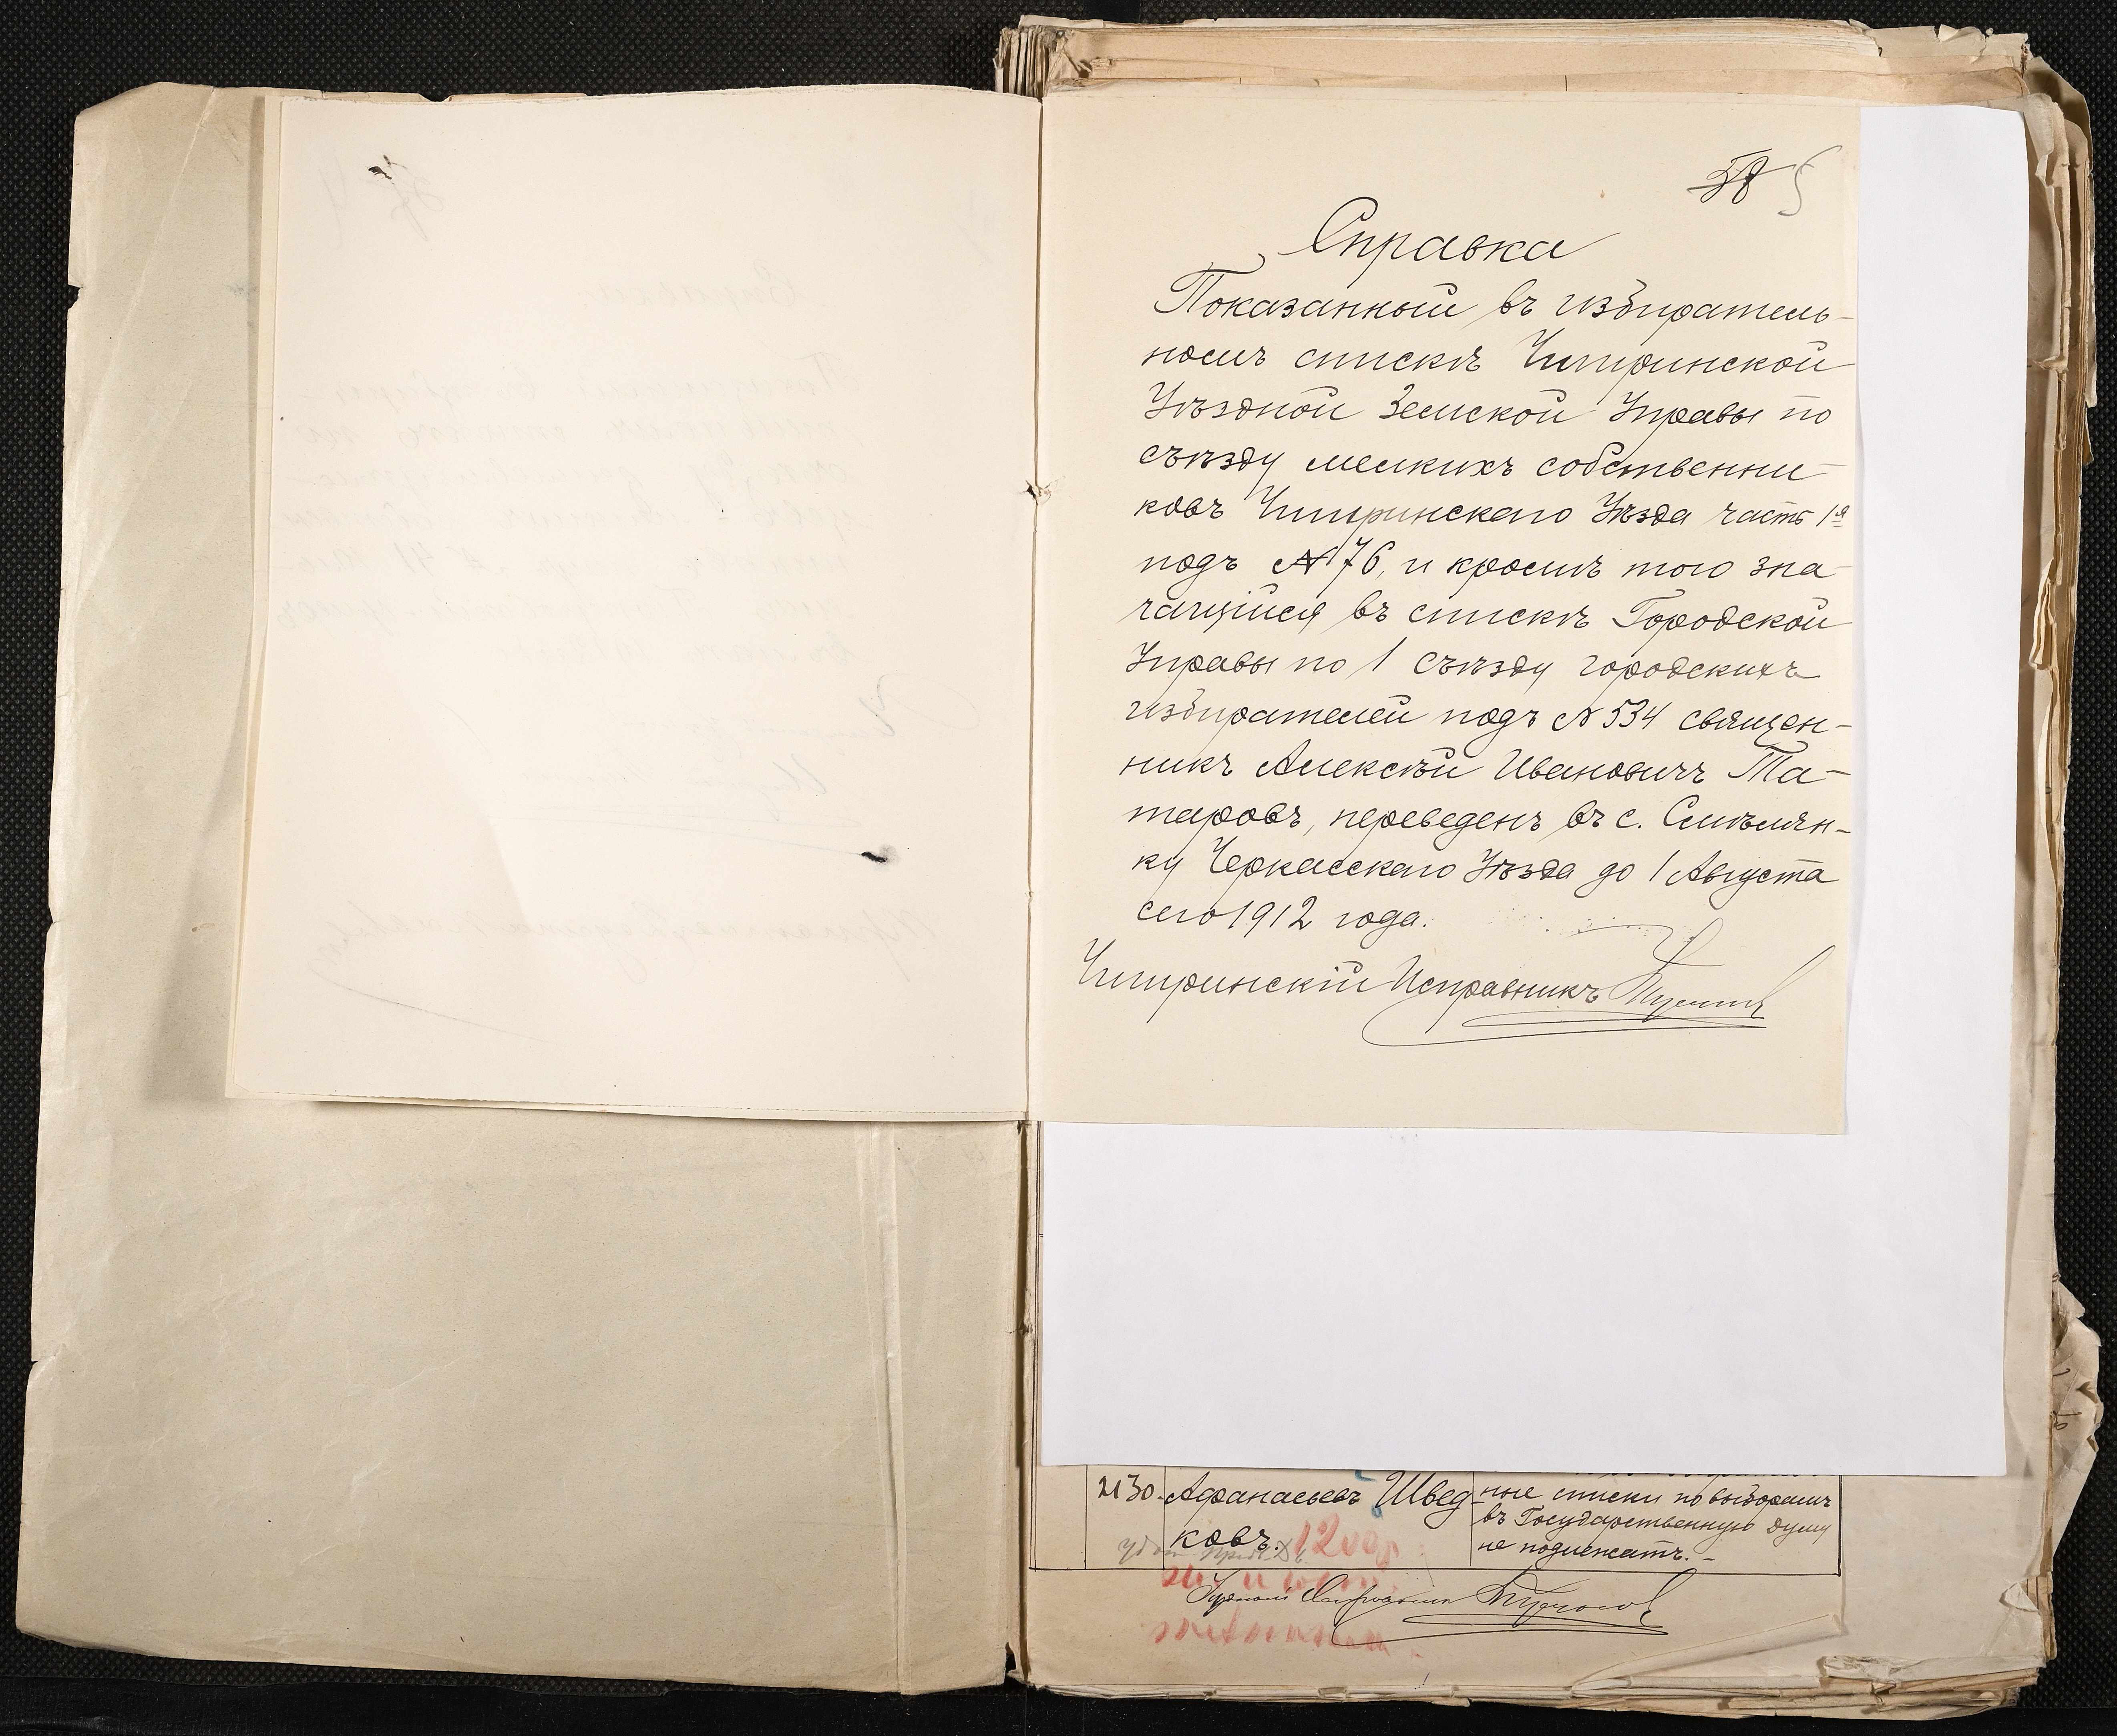 58 5
Справка
Показанный въ избиратель-
номъ спискѣ Чигринской
Уѣздной Земской Управы по
съѣзду мелкихъ собственни-
ковъ Чигринскаго Уѣзда часть 1я
подъ №76, и кромѣ того зна-
чащійся въ спискѣ Городской
Управы по 1 съѣзду городскихъ
избирателей подъ №534 священ-
никъ Алексѣй Ивановичъ Та-
таровъ, переведенъ въ с. Смѣлян-
ку Черкасскаго Уѣзда до 1 Августа
сего 1912 года.
Чигринскій Исправникъ
2130. Афанасьевъ Швед-
ковъ.
ные списки по выборамъ
въ Государственную думу
не подлежатъ. -